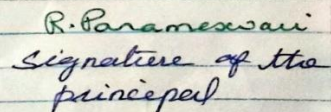 R. Parameswari
Signature of the
principal